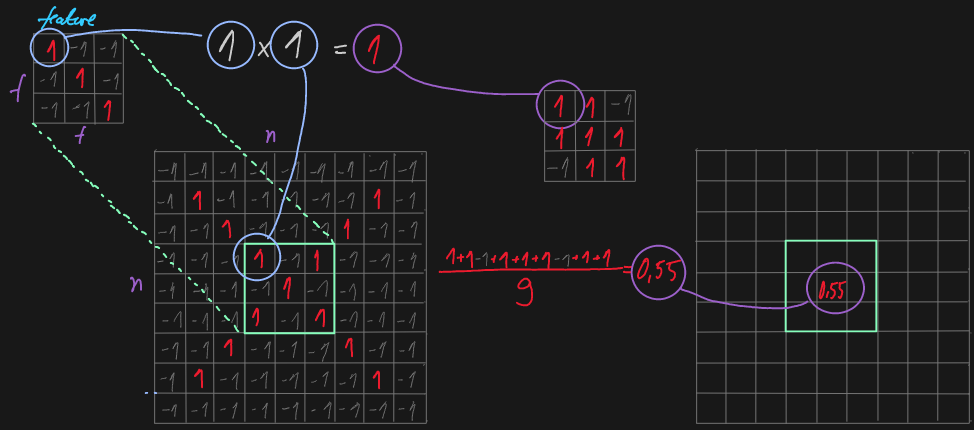 feature
1 × 1 = 1
1 -1 -1
-1 1 -1
-1 -1 1
f
f
1 1 -1
1 1 1
-1 1 1
n
n
-1 -1 -1 -1 -1 -1 -1 -1 -1
-1 1 -1 -1 -1 -1 -1 1 -1
-1 -1 1 -1 -1 -1 1 -1 -1
-1 -1 -1 1 -1 1 -1 -1 -1
-1 -1 -1 -1 1 -1 -1 -1 -1
-1 -1 -1 1 -1 1 -1 -1 -1
-1 -1 1 -1 -1 -1 1 -1 -1
-1 1 -1 -1 -1 -1 -1 1 -1
-1 -1 -1 -1 -1 -1 -1 -1 -1
1+1-1+1+1+1-1+1+1
9
=0,55
0,55